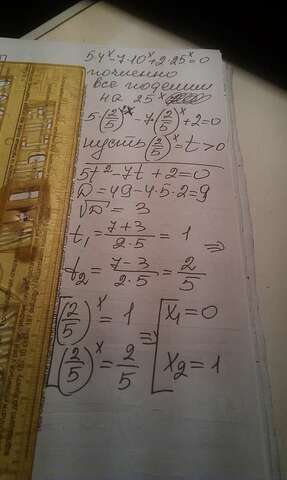 5·4ˣ-7·10ˣ+2·25ˣ=0
почленно
все поделим
на 25ˣ
5(2/5)²ˣ-7(2/5)ˣ+2=0
пусть (2/5)ˣ=t>0
5t²-7t+2=0
D=49-4·5·2=9
√D = 3
t₁ = (7+3)/(2·5) = 1 ⇒
t₂ = (7-3)/(2·5) = 2/5
[(2/5)ˣ = 1 ⇒ [x₁=0
(2/5)ˣ = 2/5 x₂=1